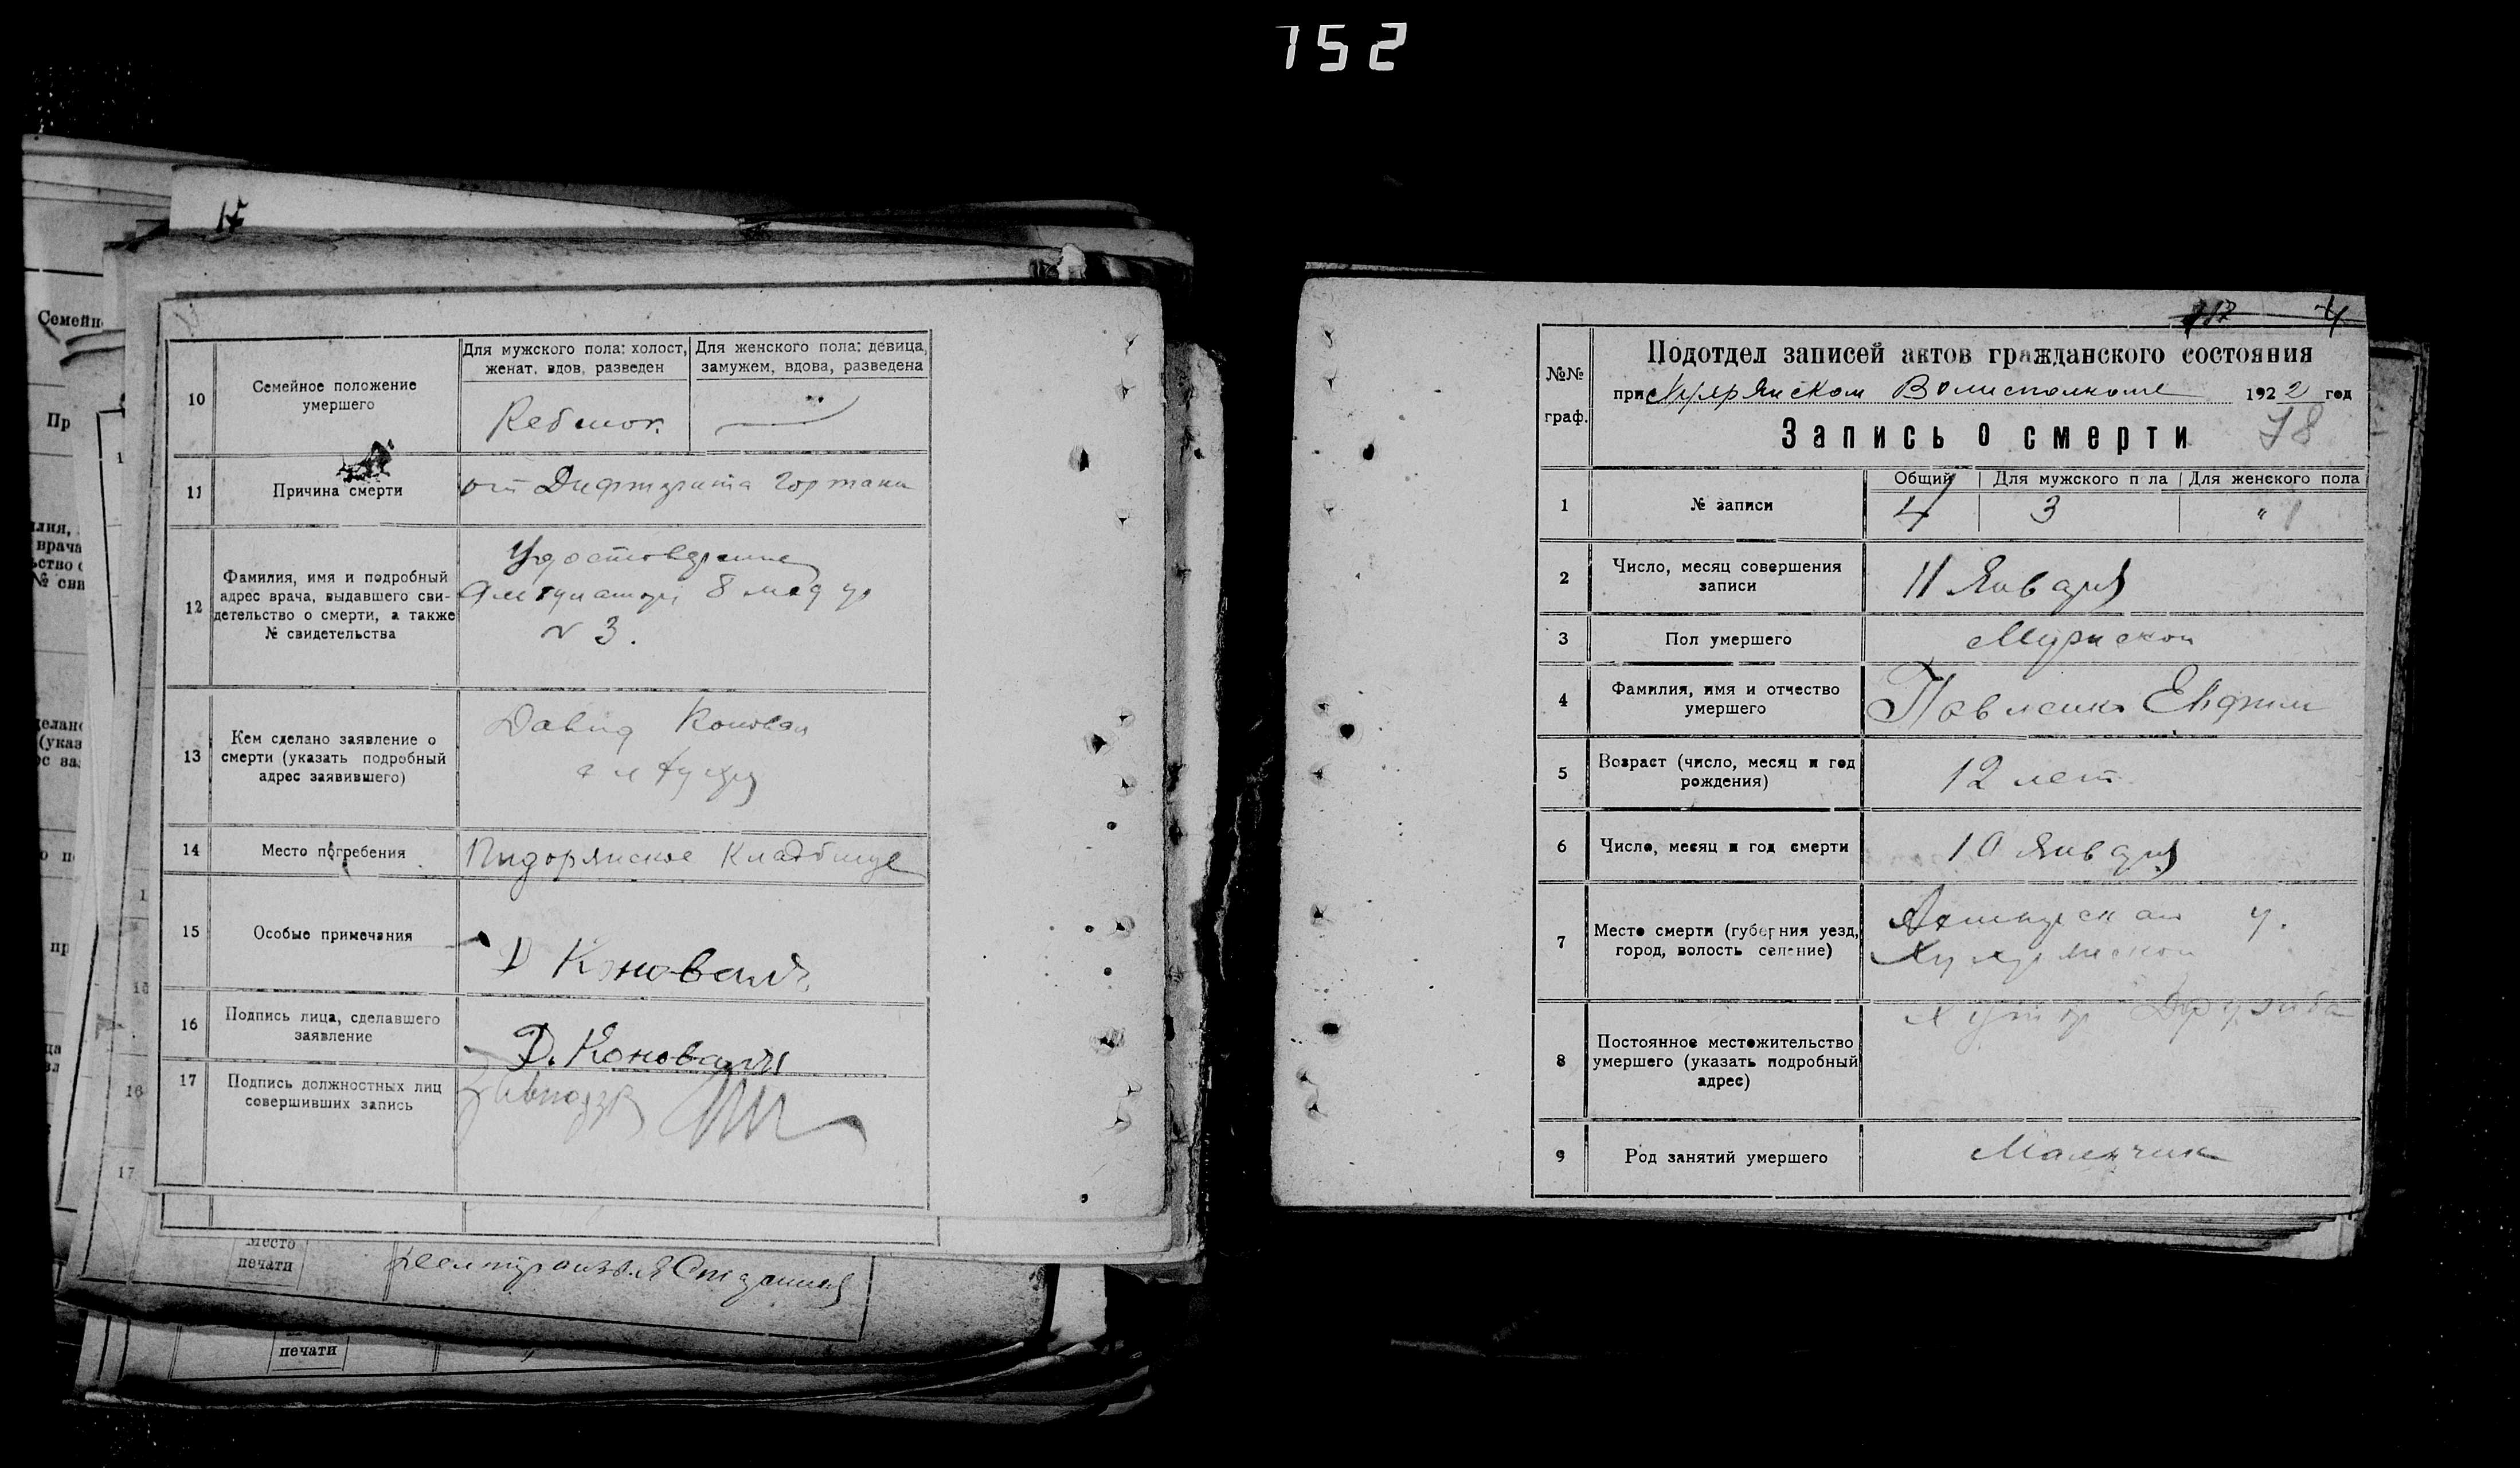 752
15
10
Семейное положение
умершего
Для мужского пола: холост,
женат, вдов, разведен
Для женского пола: девица,
замужем, вдова, разведена
Ребенок
11
Причина смерти
от Дифтерита Гортани
12
Фамилия, имя и подробный
адрес врача, выдавшего сви-
детельство о смерти, а также
№ свидетельства
Удостоверение
8
№ 3.
13
Кем сделано заявление о
смерти (указать подробный
адрес заявившего)
Давид Коновал
14
Место погребения
Кладбище
15
Особые примечания
Д Коновалъ
16
Подпись лица, сделавшего
заявление
Д. Коновалъ
17
Подпись должностных лиц
совершивших запись
Место
печати
печати
4
№№
граф.
Подотдел записей актов гражданского состояния
при Волисполкоме 1922 год
Запись о смерти
78
1
№ записи
Общий
Для мужского п ла
Для женского пола
4
3
"
2
Число, месяц совершения
записи
11 Января
3
Пол умершего
Мужской
4
Фамилия, имя и отчество
умершего
Павленко Евфим
5
Возраст (число, месяц и год
рождения)
12 лет
6
Число, месяц и год смерти
10 Января
7
Место смерти (губерния уезд,
город, волость селение)
у.
8
Постоянное местожительство
умершего (указать подробный
адрес)
Хутор Дружба
9
Род занятий умершего
Мальчик